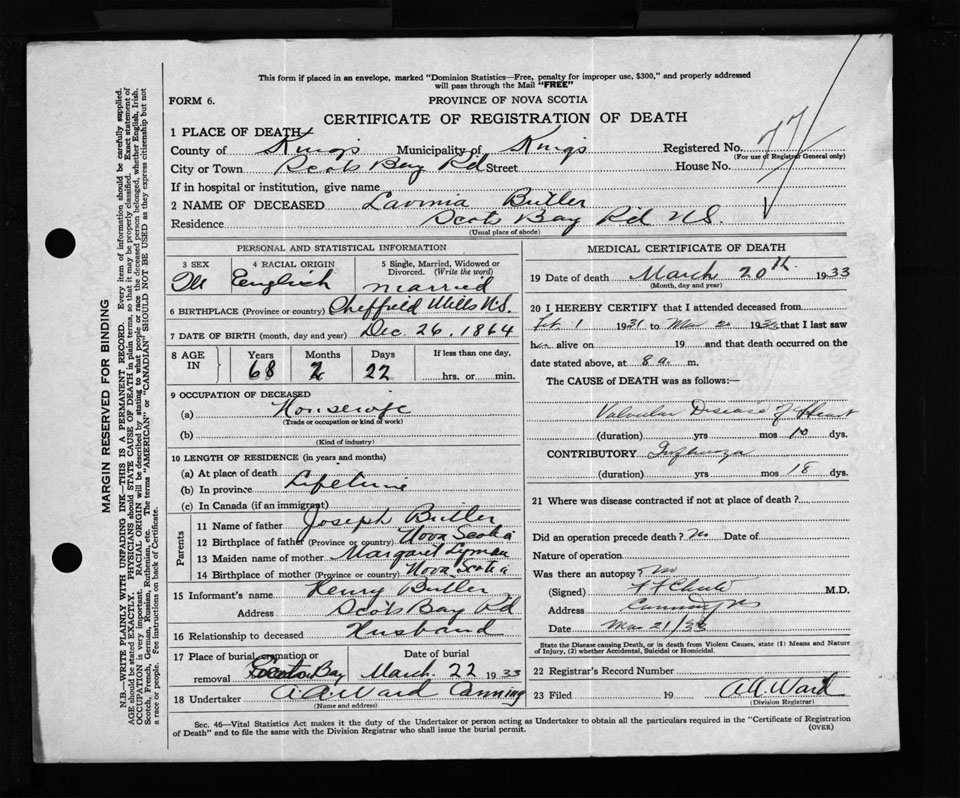 This form if placed in an envelope, marked "Dominion Statistics—Free, penalty for improper use, $300," and properly addressed
will pass through the Mail "FREE"
FORM 6.
PROVINCE OF NOVA SCOTIA
CERTIFICATE OF REGISTRATION OF DEATH
1 PLACE OF DEATH
County of Kings Municipality of Kings Registered No. 77
(For use of Registrar General only)
City or Town Scots Bay Rd Street House No.
If in hospital or institution, give name
2 NAME OF DECEASED Lavinia Butler
Residence Scots Bay Rd N.S.
(Usual place of abode)
PERSONAL AND STATISTICAL INFORMATION
3 SEX 4 RACIAL ORIGIN 5 Single, Married, Widowed or Divorced. (Write the word)
English Married
6 BIRTHPLACE (Province or country) Sheffield Mills N.S.
7 DATE OF BIRTH (month, day and year) Dec. 26, 1864
8 AGE IN Years Months Days If less than one day,
68 2 22 hrs. or min.
9 OCCUPATION OF DECEASED
(a) Housewife
(Trade or occupation or kind of work)
(b)
(Kind of industry)
10 LENGTH OF RESIDENCE (in years and months)
(a) At place of death
(b) In province Lifetime
(c) In Canada (if an immigrant)
Parents
11 Name of father Joseph Butler
12 Birthplace of father (Province or country) Nova Scotia
13 Maiden name of mother Margaret Lyman
14 Birthplace of mother (Province or country) Nova Scotia
15 Informant's name Henry Butler
Address Scots Bay Rd
16 Relationship to deceased Husband
17 Place of burial, cremation or removal Scots Bay Date of burial March 22 1933
18 Undertaker A.A. Ward Canning
(Name and address)
MEDICAL CERTIFICATE OF DEATH
19 Date of death March 20th 1933
(Month, day and year)
20 I HEREBY CERTIFY that I attended deceased from
Feb 1 1931 to Mar 20 1933 that I last saw
h alive on 19 and that death occurred on the
date stated above, at 8 a. m.
The CAUSE of DEATH was as follows:—
Valvular Disease of Heart
(duration) yrs mos 10 dys.
CONTRIBUTORY Influenza
(duration) yrs mos 18 dys.
21 Where was disease contracted if not at place of death?
Did an operation precede death? No Date of
Nature of operation
Was there an autopsy? No
(Signed) M.D.
Address Canning NS
Date Mar 21/33
State the Disease causing Death, or in death from Violent Causes, state (1) Means and Nature of Injury, (2) whether Accidental, Suicidal or Homicidal.
22 Registrar's Record Number
23 Filed 19 A.A. Ward
(Division Registrar)
Sec. 46—Vital Statistics Act makes it the duty of the Undertaker or person acting as Undertaker to obtain all the particulars required in the "Certificate of Registration
of Death" and to file the same with the Division Registrar who shall issue the burial permit.
(OVER)
MARGIN RESERVED FOR BINDING
N.B.—WRITE PLAINLY WITH UNFADING INK—THIS IS A PERMANENT RECORD. Every item of information should be carefully supplied.
AGE should be stated EXACTLY. PHYSICIANS should STATE CAUSE OF DEATH in plain terms, so that it may be properly classified. Exact statement of
OCCUPATION is very important. RACIAL ORIGIN will be described by stating to what people or race the deceased person belonged, whether English, Irish,
Scotch, French, German, Russian, Ruthenian, etc. The terms "AMERICAN" or "CANADIAN" SHOULD NOT BE USED as they express citizenship but not
a race or people. See instructions on back of Certificate.